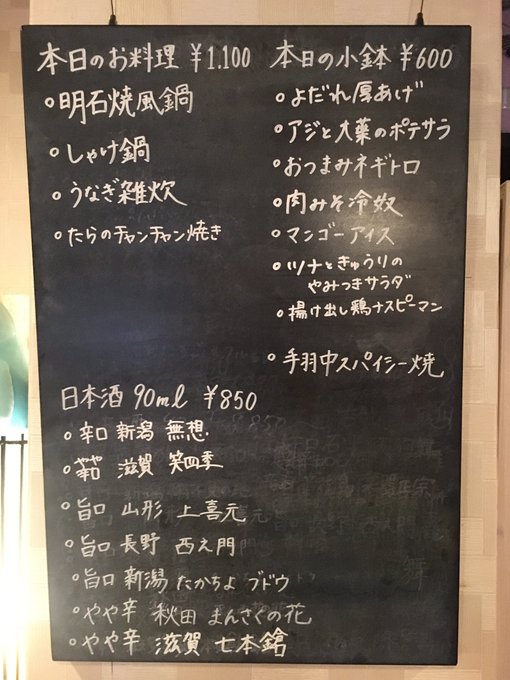 本日のお料理 ¥1.100
○明石焼風鍋
○しゃけ鍋
○うなぎ雑炊
○たらのチャンチャン焼き
本日の小鉢 ¥600
○よだれ厚あげ
○アジと大葉のポテサラ
○おつまみネギトロ
○肉みそ冷奴
○マンゴーアイス
○ツナときゅうりの
やみつきサラダ
○揚げ出し鶏ナスピーマン
○手羽中スパイシー焼
日本酒 90ml ¥850
○辛口 新潟 無想
○やや辛口 滋賀 笑四季
○旨口 山形 上喜元
○旨口 長野 西之門
○旨口 新潟 たかちよ ブドウ
○やや辛 秋田 まんさくの花
○やや辛 滋賀 七本鎗